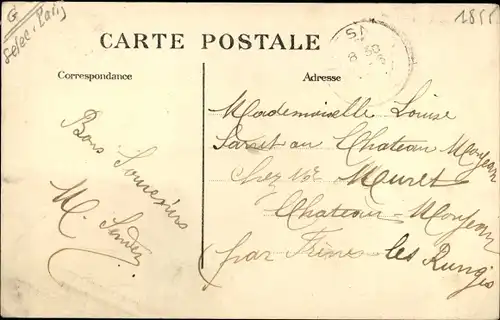 G
Selec. Paris
1855
CARTE POSTALE
Correspondance
Adresse
Bons Souvenirs
M.
Mademoiselle Louise
au Chateau Monjean
Chez Mr Muret
Chateau-Monjean
par Frênes-les Rungis